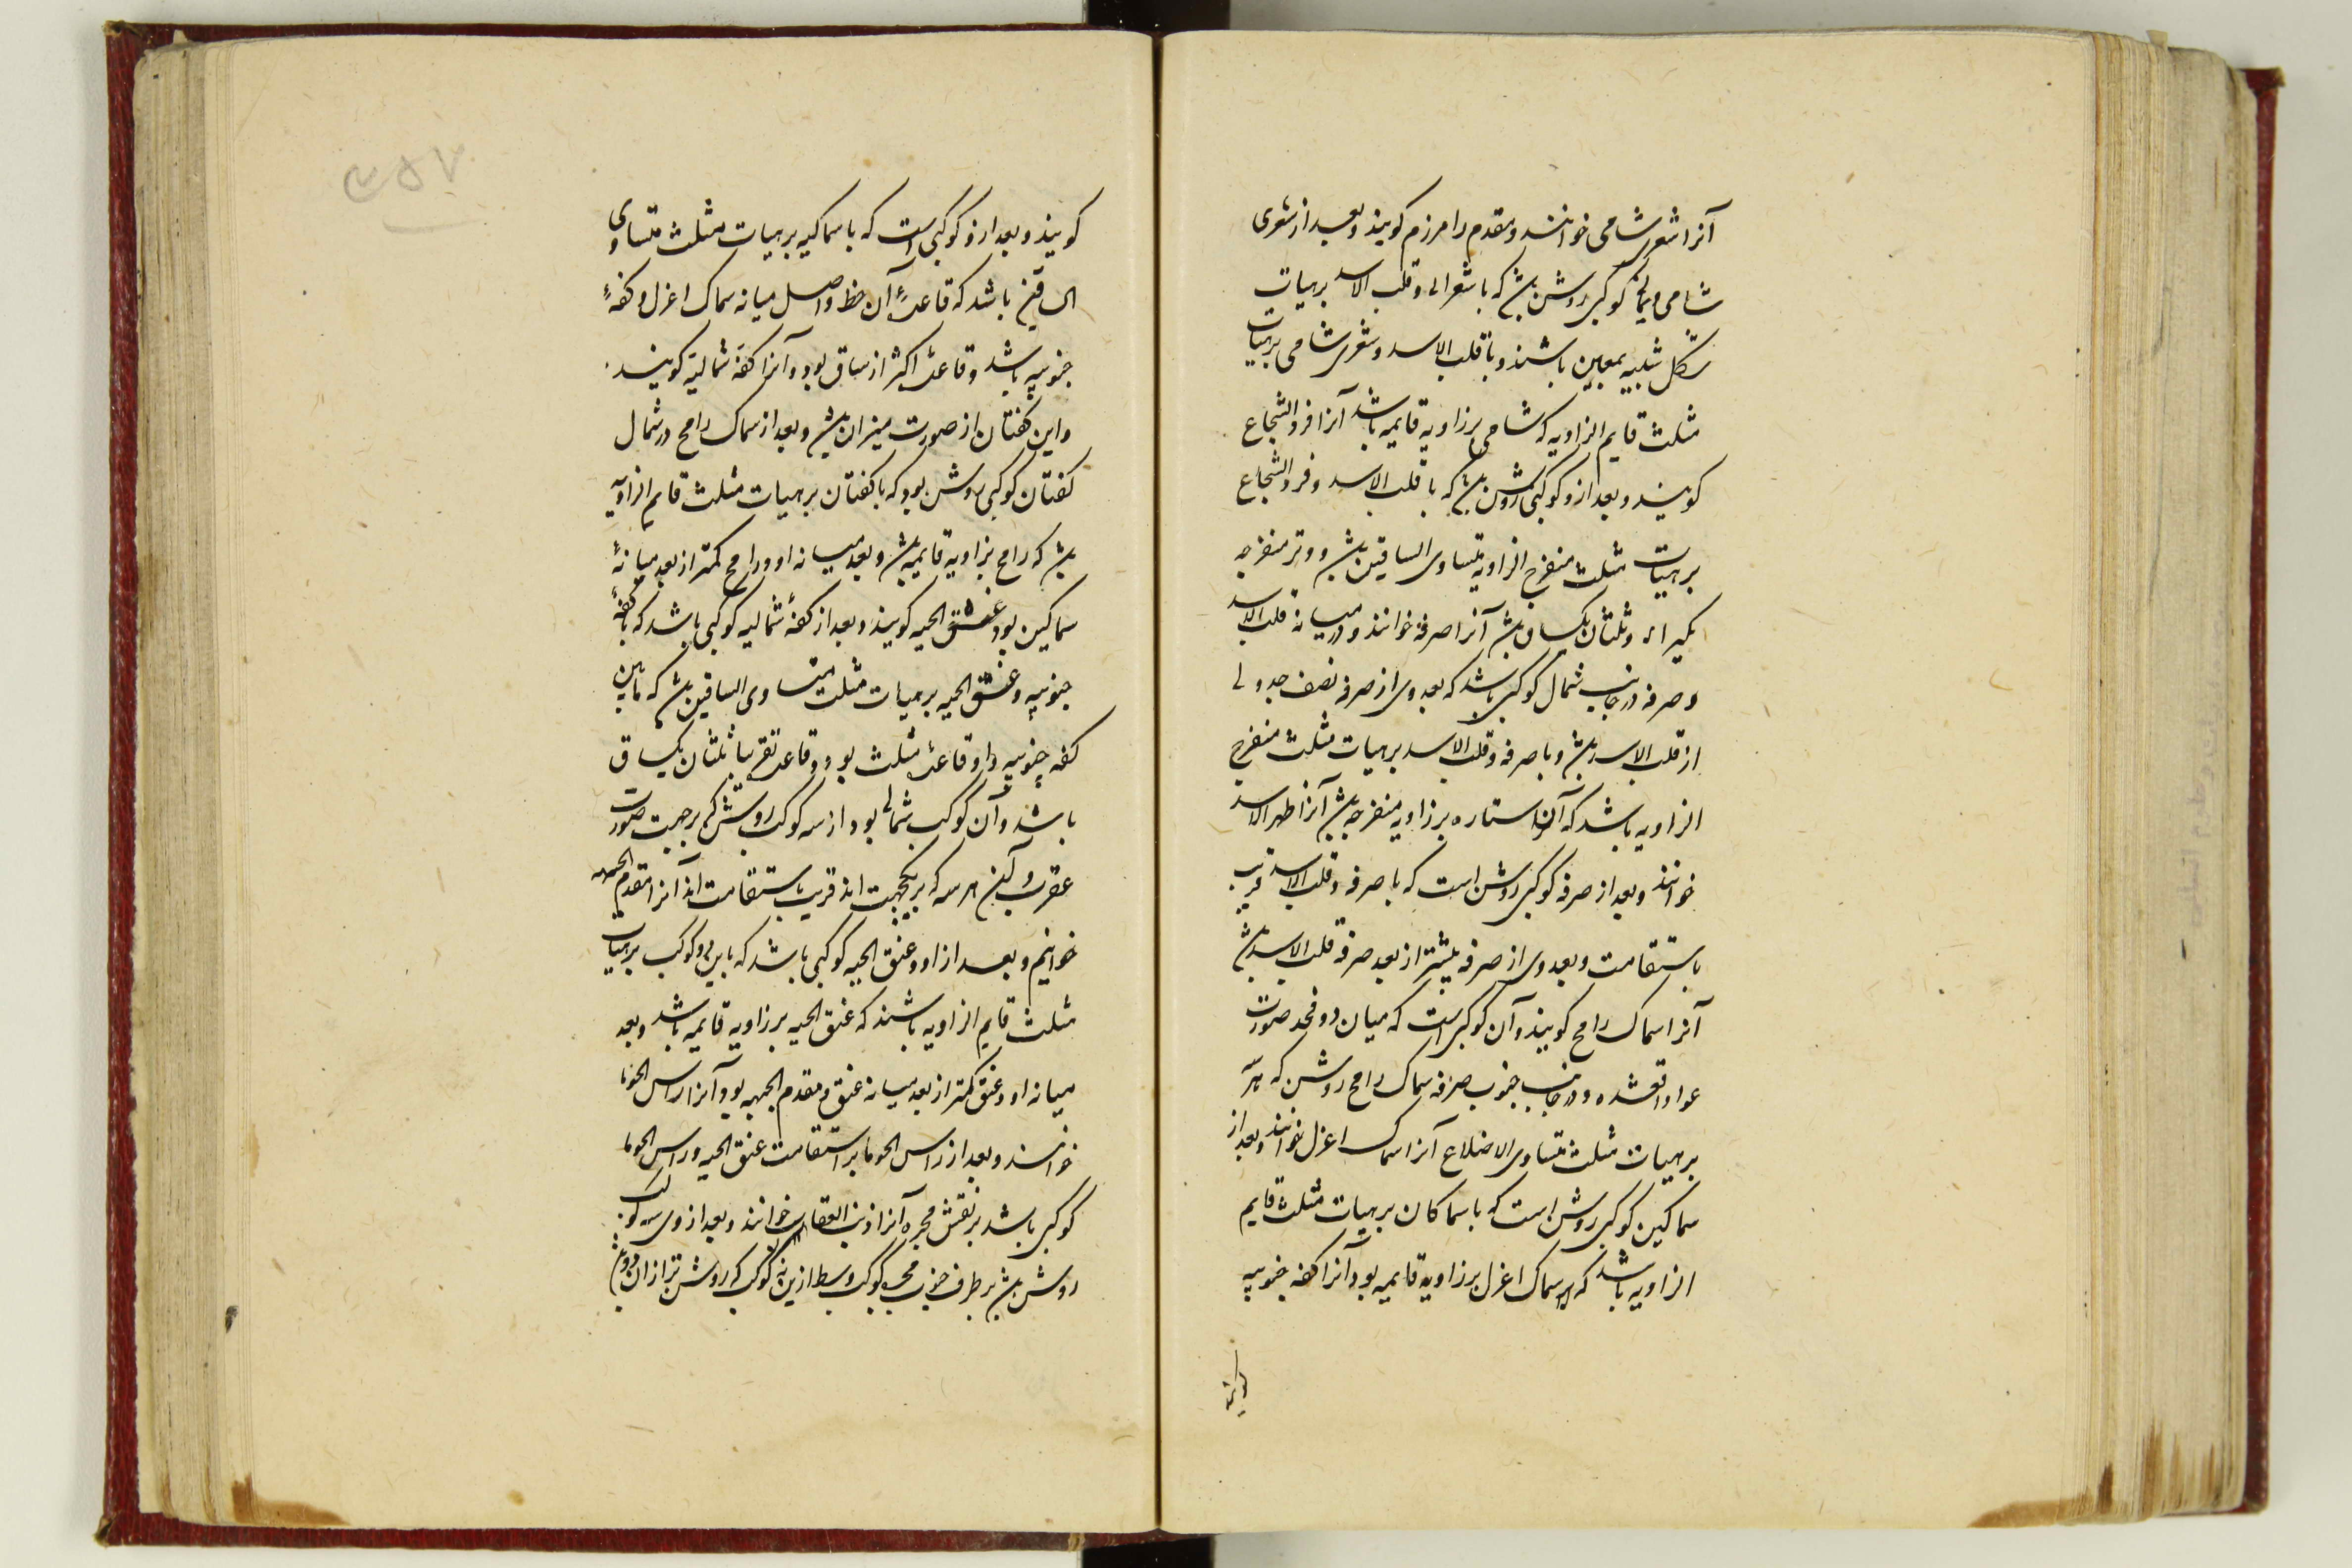 آنرا شعری شامی خوانند و مقدم را مرزم کویند و بعد از شعری
شامی و یمانی کوکبی روشن باشد که با شعرای و قلب الاسد برهیات
شکل شبیه بمعین باشند و با قلب الاسد و شعری شامی برهیات
مثلث قایم الزاویه که شامی بر زاویه قایمه باشد آنرا فرد الشجاع
کویند و بعد ازو کوکبی روشن باشد که با قلب الاسد و فرد الشجاع
برهیات مثلث منفرج الزاویه متساوی الساقین باشد و وتر منفرجه
یکبرابر و ثلثان یکساق باشد آنرا صرفه خوانند و در میانه قلب الاسد
و صرفه در جانب شمال کوکبی باشد که بعد وی از صرفه نصف
از قلب الاسد باشد و با صرفه و قلب الاسد برهیات مثلث منفرج
الزاویه باشد که آن ستاره بر زاویه منفرجه باشد آنرا ظهر الاسد
خوانند و بعد از صرفه کوکبی روشن است که با صرفه و قلب الاسد قریب
باستقامت و بعد وی از صرفه بیشتر از بعد صرفه قلب الاسد باشد
آنرا سماک رامح کویند و آن کوکبی است که میان دو فخذ صورت
عوا واقعشده و در جانب جنوب صرفه سماک رامح روشن که هر سه
برهیات مثلث متساوی الاضلاع آنرا سماک اعزل خوانند و بعد از
سماکین کوکبی روشن است که با سماکان برهیات مثلث قایم
الزاویه باشد که سماک اعزل بر زاویه قایمه بود آنرا کفه جنوبیه
کویند
۳۵۷
کویند و بعد ازو کوکبی است که با سماکین برهیات مثلث متساوی
الساقین باشد که قاعدهٔ آن خط واصل میانه سماک اعزل و کفهٔ
جنوبیه باشد و قاعده اکثر از ساق بود و آنرا کفهٔ شمالیه کویند
و این کفتان از صورت میزان باشد و بعد از سماک رامح در شمال
کفتان کوکبی روشن بود که با کفتان برهیات مثلث قایم الزاویه
باشد که رامح بزاویه قایمه باشد و بعد میانه او و رامح کمتر از بعد میانهٔ
سماکین بود عنق الحیه کویند و بعد از کفهٔ شمالیه کوکبی باشد که با کفهٔ
جنوبیه و عنق الحیه برهیات مثلث متساوی الساقین باشد که مابین
کفه جنوبیه و او قاعده مثلث بود و قاعده تقریبا ثلثان یکساق
باشد و آن کوکب شمالی بود از سه کوکب روشن که بر جبهت صورت
عقرب و این هر سه که بر یکجهت اند قریب باستقامت اند آنرا مقدم الجبهه
خوانیم و بعد از او و عنق الحیه کوکبی باشد که با این دو کوکب برهیات
مثلث قایم الزاویه باشند که عنق الحیه بر زاویه قایمه باشد و بعد
میانه او و عنق کمتر از بعد میانه عنق و مقدم الجبهه بود آنرا راس الحوا
خوانند و بعد از راس الحوا بر استقامت عنق الحیه و راس الحوا
کوکبی باشد بر نفس مجره آنرا ذنب العقاب خوانند و بعد از وی سه کوکب
روشن باشد بر طرف جنوب مجره کوکب وسط ازین سه کوکب که روشن تر از آن دو باشد